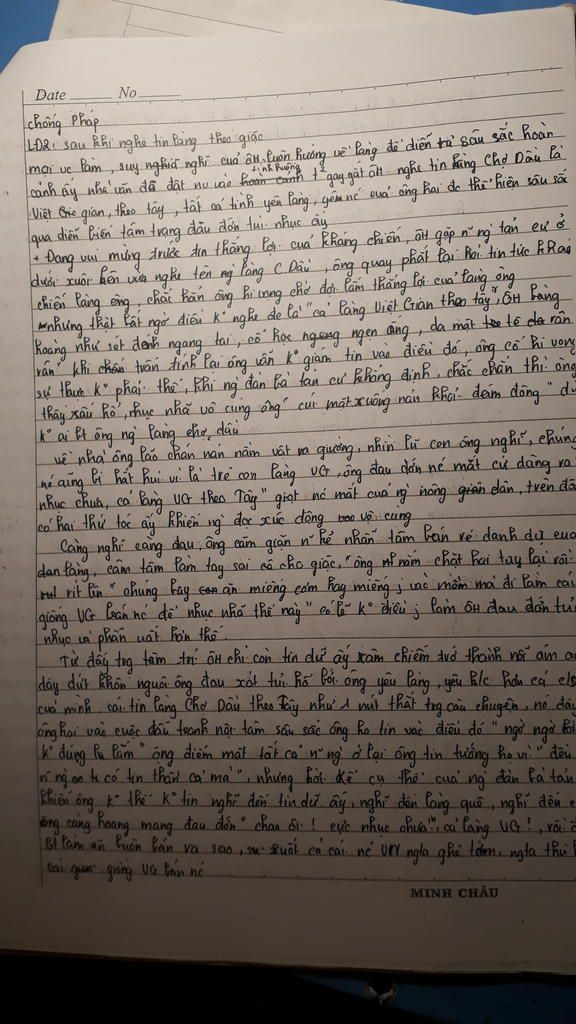 Date No
chống Pháp
LĐ2: sau khi nghe tin làng theo giặc
mọi vc làm, suy nghĩ của ôH luôn hướng về làng để diễn tả sâu sắc hoàn
cảnh ấy nhà văn đã đặt nv vào tình huống gay gắt ôH nghe tin làng Chợ Dầu là
Việt gian, theo tây, tất cả tình yêu làng, yêu nc của ông hai đc thể hiện sâu sắc
qua diễn biến tâm trạng đau đớn tủi nhục ấy
+ Đang vui mừng trước tin thắng lợi của kháng chiến, ôH gặp n~ ng tản cư ở
dưới xuôi lên vừa nghe tên ng làng C.Dầu, ông quay phắt lại hỏi tin tức
chiến làng ông, chắc hẳn ông hi vọng chờ đợi lắm thắng lợi của làng ông
nhưng thật bất ngờ điều k° nghe đc là "cả làng Việt Gian theo tây", ôH bàng
hoàng như sét đánh ngang tai, cổ họng nghẹn ắng, da mặt tê rân
rân" khi trấn tĩnh lại ông vẫn k° giám tin vào điều đó, ông cố hi vọng
sự thực k° phải thế, khi ng đàn bà tản cư khẳng định, chắc chắn thì ông
thấy xấu hổ, nhục nhã vô cùng ông "cúi mặt xuống
k° ai bt ông ng làng chợ dầu
về nhà ông lão chán nản nằm vật ra giường, nhìn lũ con ông nghĩ, chúng
nó cũng bị hắt hủi vì là trẻ con làng VG, ông đau đớn nc mắt cứ dâng ra
nhục chưa, cả làng VG theo Tây" giọt nc mắt của ng nông dân, trên đầ
có hai thứ tóc ấy khiến ng đọc xúc động vô cùng
Càng nghĩ càng đau, ông căm giận n~ kẻ nhẫn tâm bán rẻ danh dự của
dan làng, cam tâm làm tay sai cho giặc, "ông nắm chặt hai tay lại rồi
rít lên "chúng bay ăn miếng cơm hay miếng j vào mồm mà đi làm cái
giống VG bán nc để nhục nhã thế này" có lẽ k° điều j làm ôH đau đớn tủi
nhục và phẫn uất hơn thế.
Từ đấy trg tâm trí ôH chỉ còn tin dữ ấy xâm chiếm trở thành nỗi ám ả
dáy dứt khôn nguôi ông đau xót tủi hổ bởi ông yêu làng, yêu hơn cả
của mình cái tin làng Chợ Dầu theo Tây như 1 nút thắt trg câu chuyện, nó đẩy
ông hai vào cuộc đấu tranh nội tâm sâu sắc ông k° tin vào điều đó "ngờ ngợ lời
k° đúng là lắm" ông điểm mặt tất cả n~ ng ở lại ông tin tưởng họ vì "đều
n~ ng có tin thần cả mà", nhưng lời kể cụ thể của ng đàn bà tản
khiến ông k° thể k° tin nghĩ đến tin dữ ấy, nghĩ đến làng quê, nghĩ đến
ông càng hoang mang đau đớn "chao ôi! cực nhục chưa, cả làng VG!, rồi
bt làm ăn buôn bán ra sao, suốt cả cái nc VN ngta ghê tởm, ngta thù
cái giống VG bán nc
MINH CHÂU